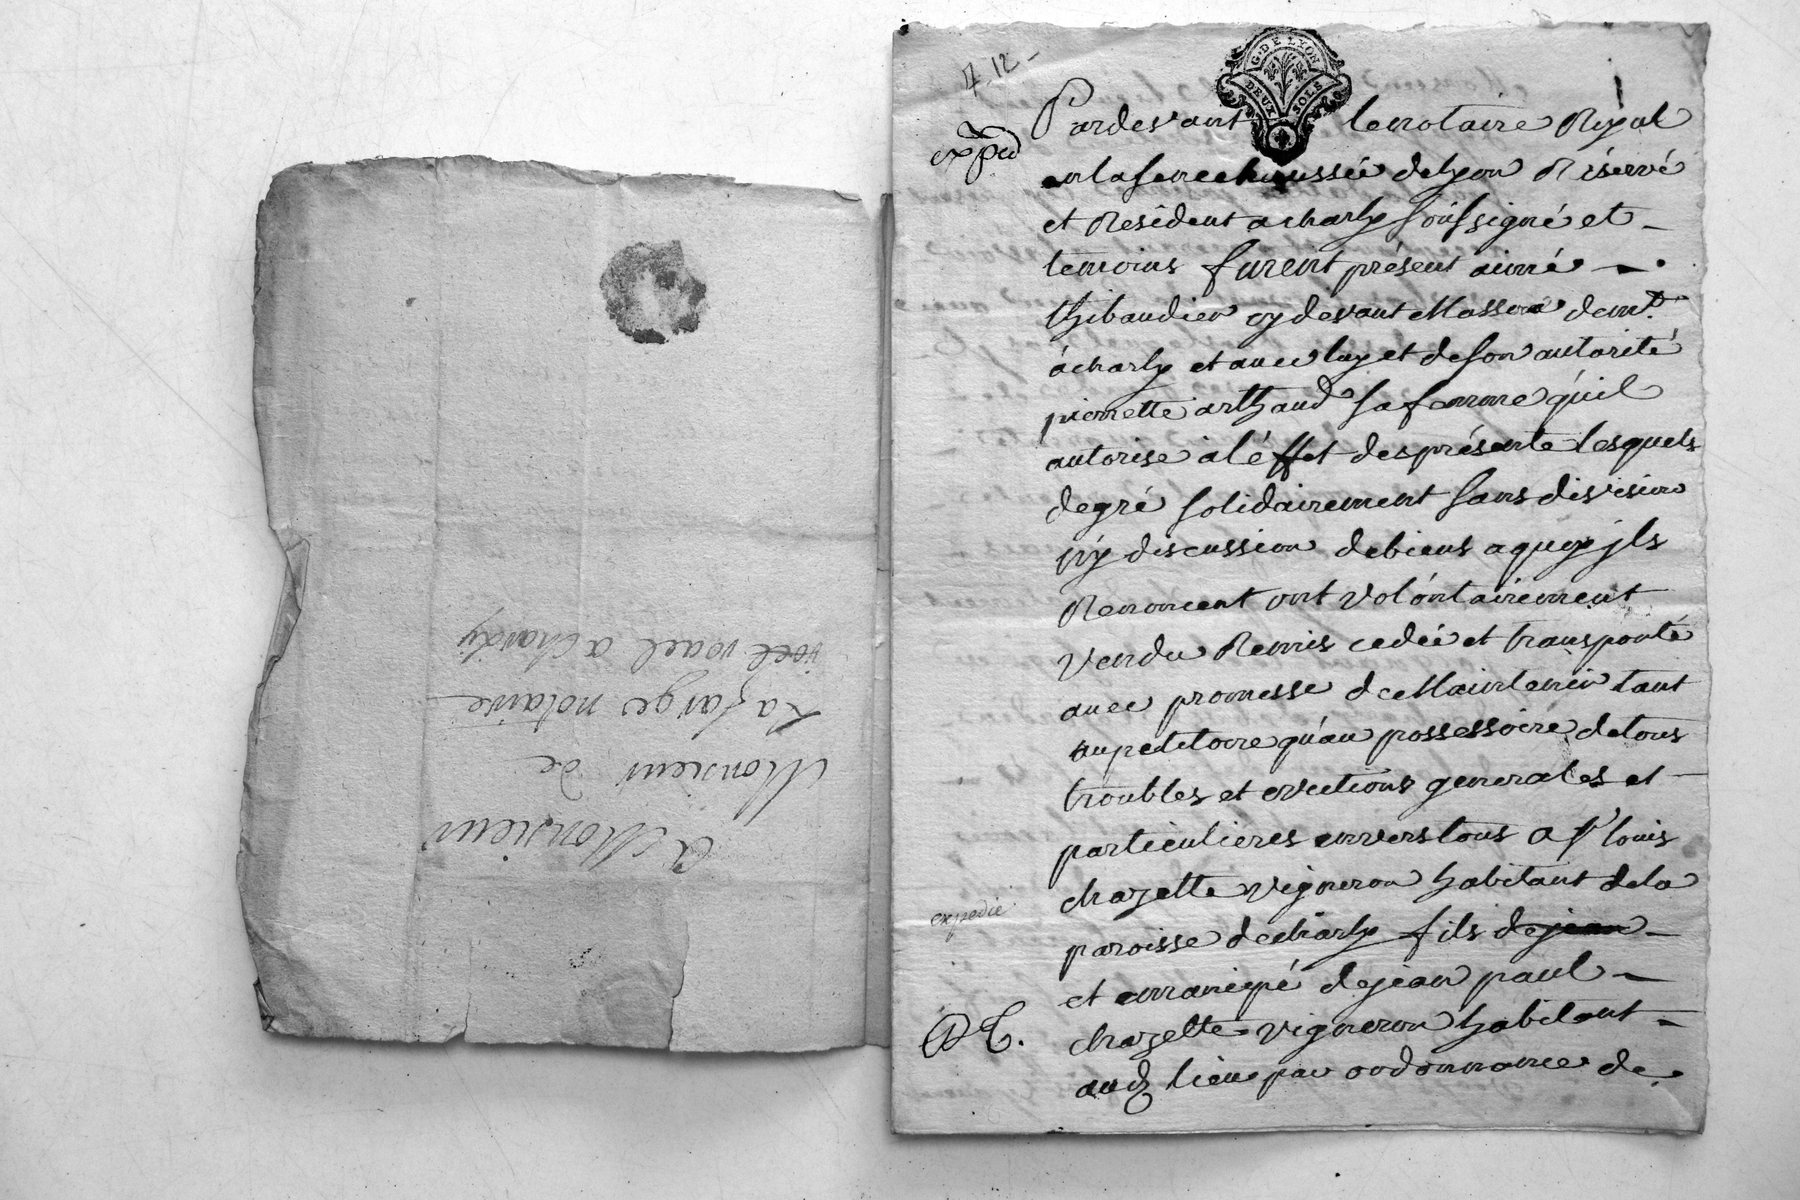 A Monsieur
Monsieur de
Lafarge notaire
roial a Charly
7 12
G. DE LYON
DEUX SOLS
expedie
Pardevant le notaire Royal
en la senechaussée de Lyon Réservé
et Résident a charly soussigné et
temoins furent présent aimé
thibaudier cy devant Masson demt
á charly et avec luy et de son autorité
pierrette arthaud sa femme qu'il
autorise à l'éffet des présente lesquels
de gré solidairement sans divisions
ny discussion de biens a quoy jls
Renoncent ont volontairement
vendu Remis cedée et transporté
avec promesse de Maintenir tant
au petitoire qu'au possessoire de tous
troubles et evictions generales et
particulieres envers tous a Sr louis
chazette vigneron habitant de la
paroisse de charly fils de jean
et emancipé de jean paul
chazette vigneron habitant
aud lieu par ordonnance de